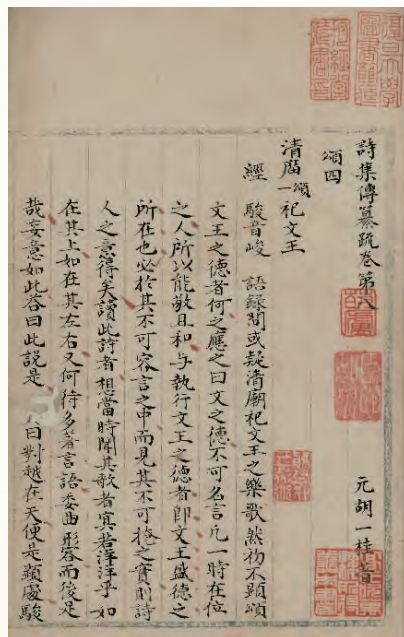 詩集傳纂疏卷第八
元胡一桂著
頌四
清廟一頌祀文王
經 駿音峻 語録問或疑清廟祀文王之樂歌然初不顯頌
文王之德者何也應之曰文之德不可名言凡一時在位
之人所以能敬且和与執行文王之德者即文王盛德之
所在也必於其不可容言之中而見其不可掩之實則詩
人之意得矣讀此詩者想當時聞其歌者寅若洋洋乎如
在其上如在其左右又何待多著言語委曲形容而後足
哉妄意如此答曰此說是 曰對越在天便是顯處駿